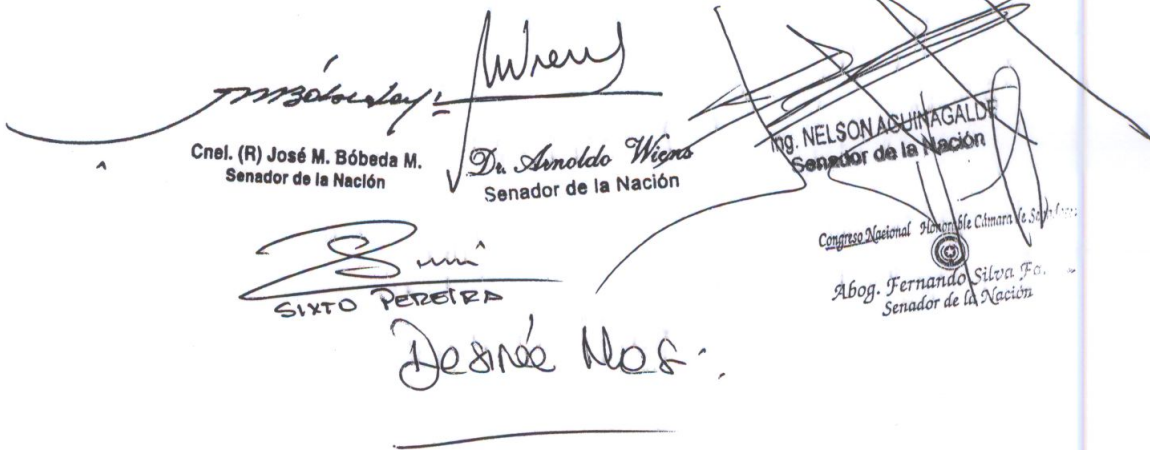 Cnel. (R) José M. Bóbeda M.
Senador de la Nación
Dr. Arnoldo Wiens
Senador de la Nación
Ing. NELSON AGUINAGALDE
Senador de la Nación
Congreso Nacional Honorable Cámara de Senadores
Abog. Fernando Silva Fa.
Senador de la Nación
SIXTO PEREIRA
Desirée